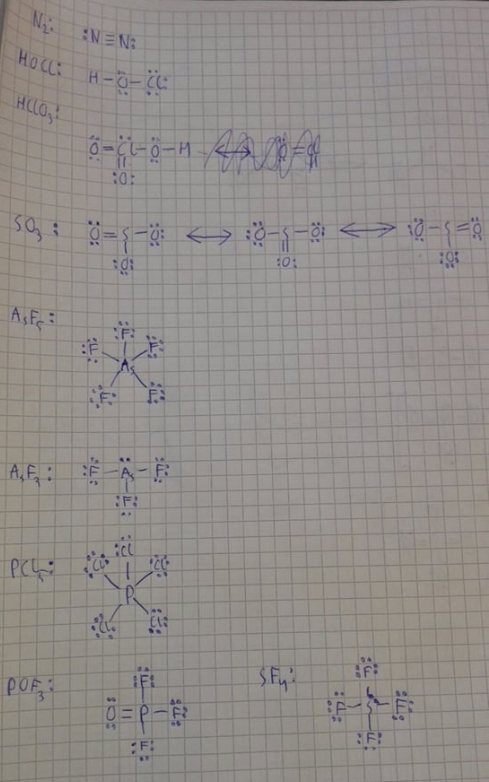 N₂: :N≡N:
HOCl: H-O-Cl
HClO₃:
O=Cl-O-H
O
SO₃: O=S-O ⟷ O-S-O ⟷ O-S=O
O O O
AsF₅:
F
F F
As
F F
AsF₃: F-As-F
F
PCl₅:
Cl
Cl Cl
P
Cl Cl
POF₃: SF₄:
F F
O=P-F F-S-F
F F